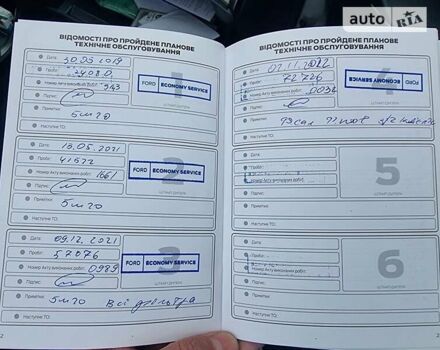 auto RIA
ВІДОМОСТІ ПРО ПРОЙДЕНЕ ПЛАНОВЕ
ТЕХНІЧНЕ ОБСЛУГОВУВАННЯ
Дата: 30.05 2019
Пробіг: 24080
Номер Акту виконаних робіт: 943
Підпис:
Примітки: 5w20
Наступне ТО:
1
FORD ECONOMY SERVICE
ШТАМП ДИЛЕРА
Дата: 18.05.2021
Пробіг: 41522
Номер Акту виконаних робіт: 1661
Підпис:
Примітки: 5w20
Наступне ТО:
2
FORD ECONOMY SERVICE
ШТАМП ДИЛЕРА
Дата: 09.12.2021
Пробіг: 57076
Номер Акту виконаних робіт: 0989
Підпис:
Примітки: 5w20 Всі фільтра
Наступне ТО:
3
FORD ECONOMY SERVICE
ШТАМП ДИЛЕРА
2
ВІДОМОСТІ ПРО ПРОЙДЕНЕ ПЛАНОВЕ
ТЕХНІЧНЕ ОБСЛУГОВУВАННЯ
Дата: 02.11.2022
Пробіг: 72726
Номер Акту виконаних робіт:
Підпис:
Примітки:
Наступне ТО:
4
FORD ECONOMY SERVICE
ШТАМП ДИЛЕРА
Дата:
Пробіг:
Номер Акту виконаних робіт:
Підпис:
Примітки:
Наступне ТО:
5
ШТАМП ДИЛЕРА
Дата:
Пробіг:
Номер Акту виконаних робіт:
Підпис:
Примітки:
Наступне ТО:
6
ШТАМП ДИЛЕРА